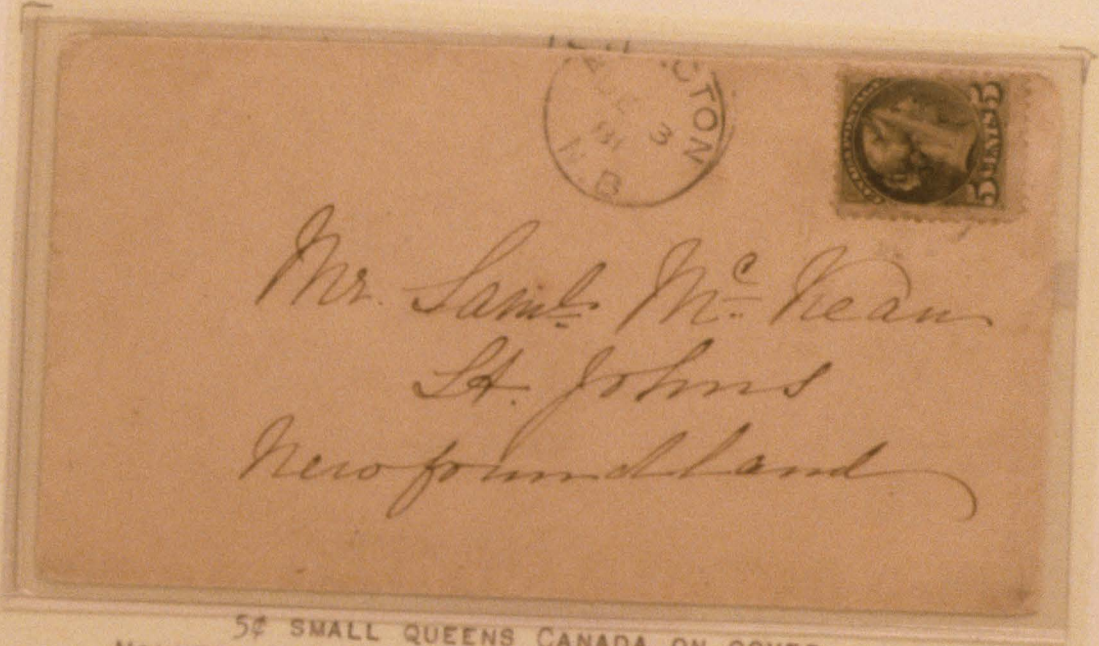 CTON
3
81
N.B
5 CENTS 5
Mr. Saml. Mc. Kean
St. Johns
Newfoundland
5¢ SMALL QUEENS CANADA ON COVER